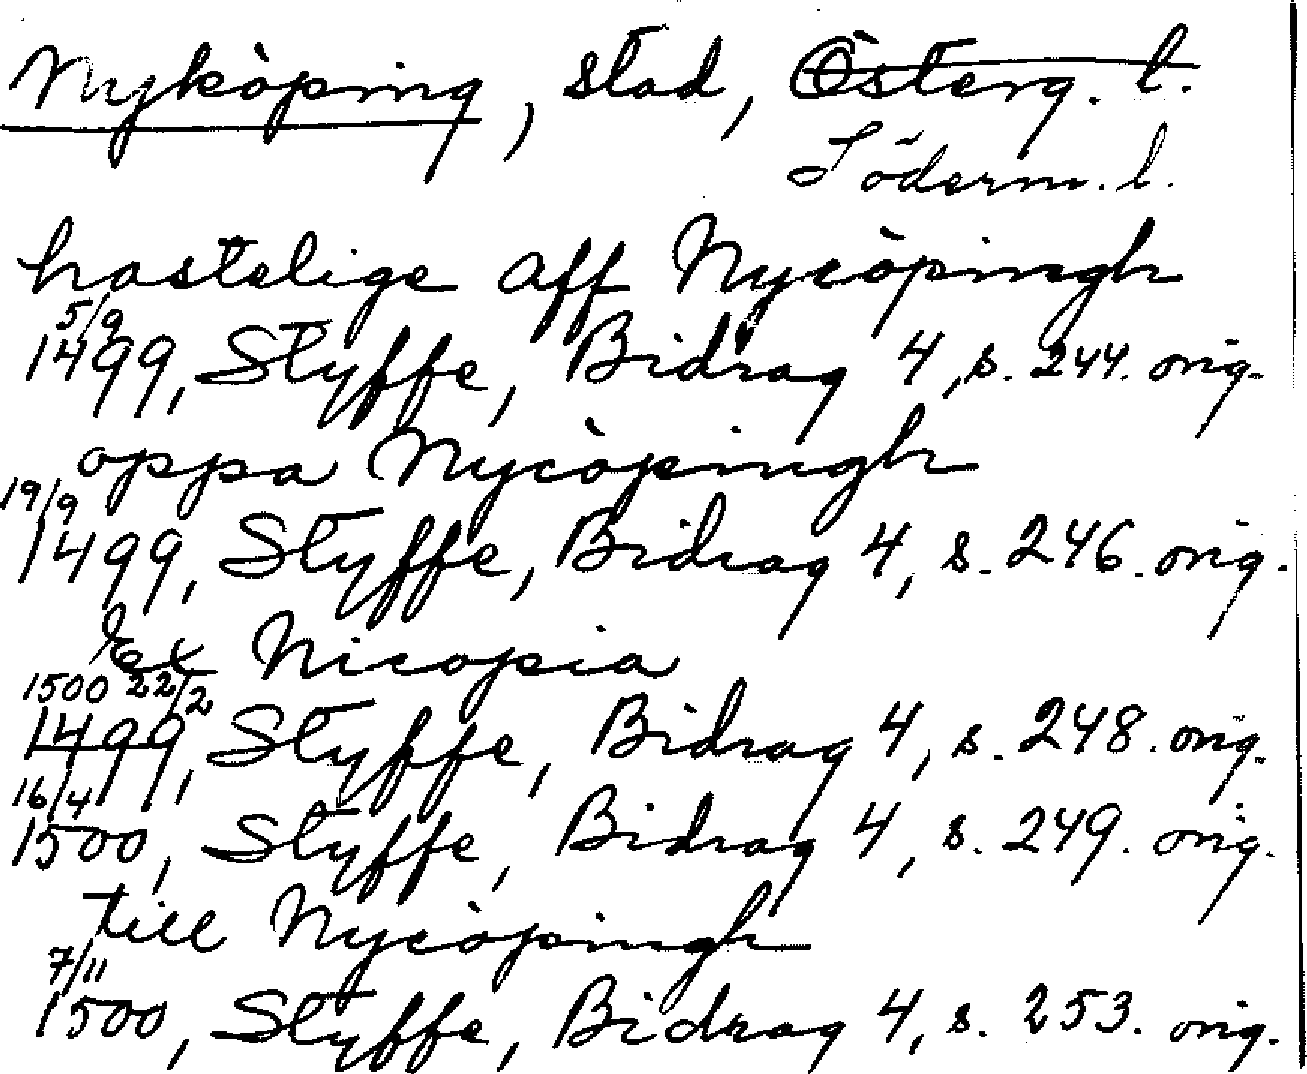 Nyköping, stad, Österg. l.
Söderm. l.
hastelige aff Nycöpingh
5/9
1499, Styffe, Bidrag 4, s. 244. orig.
oppa Nycöpingh
19/9
1499, Styffe, Bidrag 4, s. 246. orig.
Ex Nicopia
1500 22/2
1499, Styffe, Bidrag 4, s. 248. orig.
16/4
1500, Styffe, Bidrag 4, s. 249. orig.
till Nycöpingh
7/11
1500, Styffe, Bidrag 4, s. 253. orig.